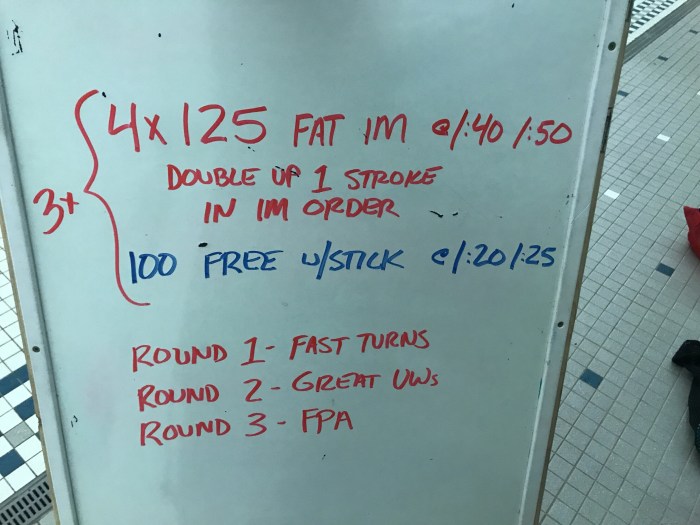 4x 125 FAT IM @ 1:40 1:50
DOUBLE UP 1 STROKE
IN IM ORDER
3x
100 FREE w/STICK @ 1:20 1:25
ROUND 1 - FAST TURNS
ROUND 2 - GREAT UWs
ROUND 3 - FPA